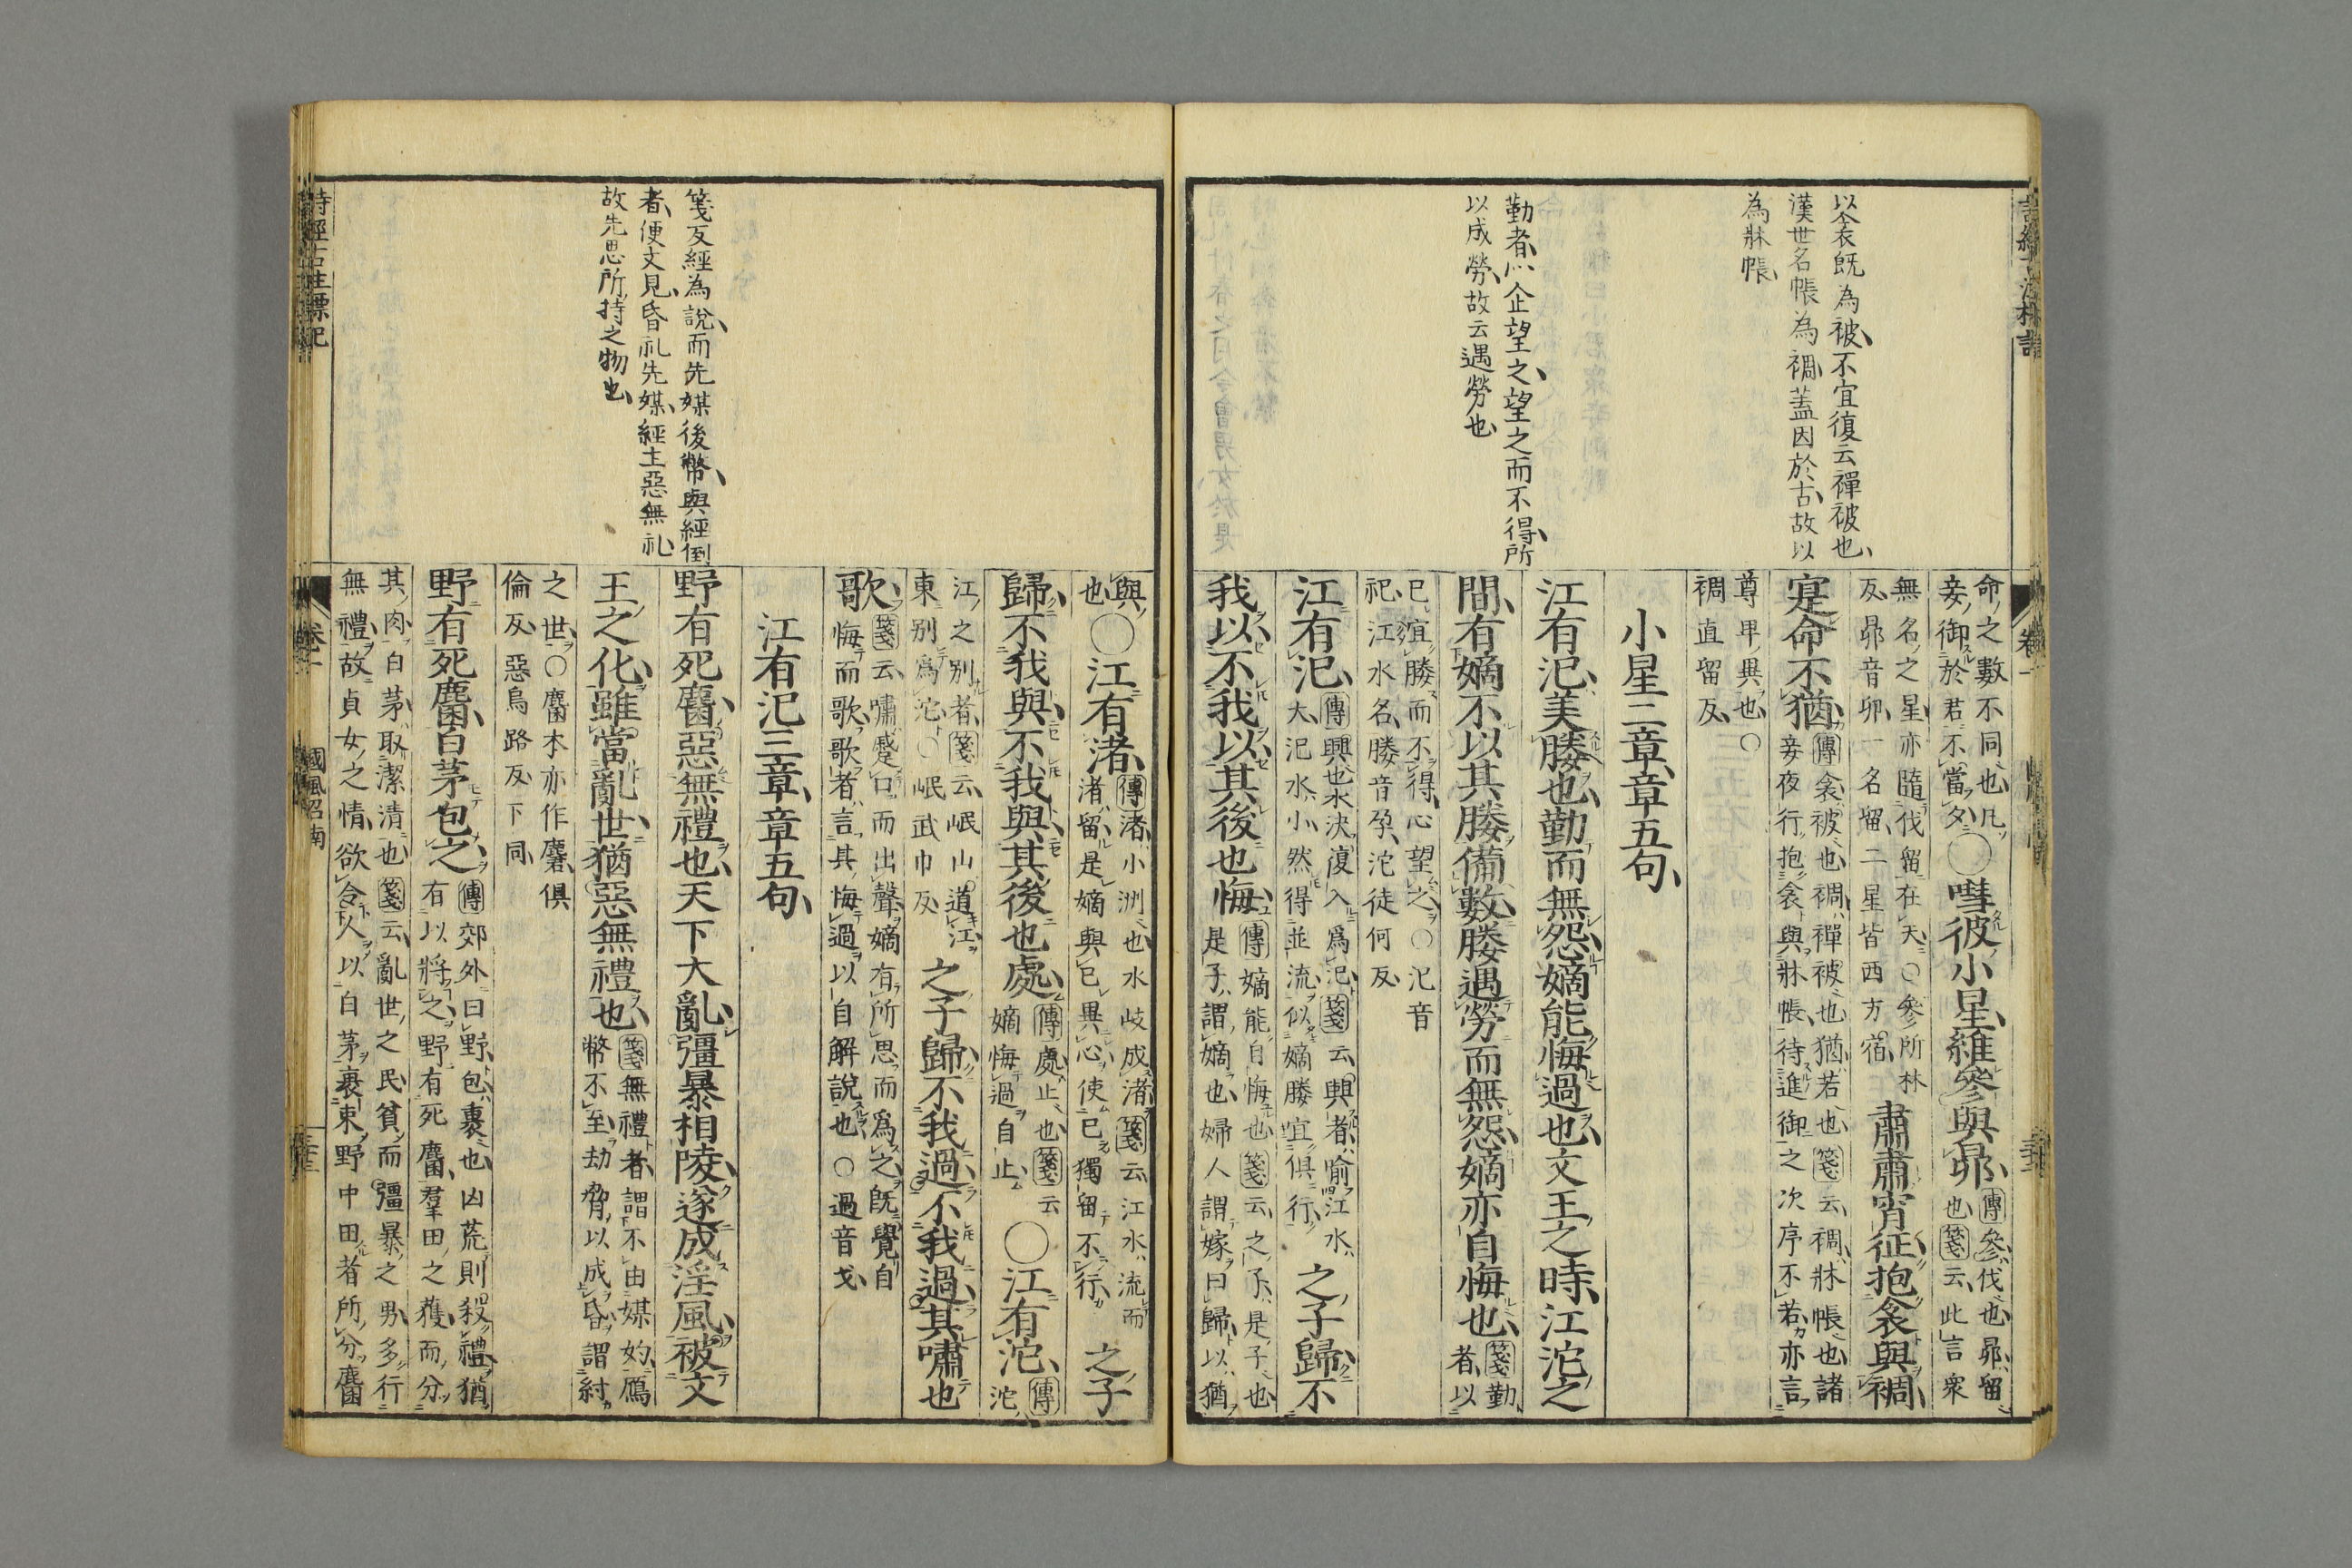 以衾既為被不宜復云襌被也
漢世名帳為裯蓋因於古故以
為牀帳
勤者心企望之望之而不得所
以成勞故云遇勞也
命之數不同也凡
妾御於君不當夕
○嘒彼小星維參與昴
傳參伐也昴留
也箋云此言衆
無名之星亦隨伐留在天○參所林
反昴音卯一名留二星皆西方宿
肅肅宵征抱衾與裯
寔命不猶
傳衾被也裯襌被也猶若也箋云裯牀帳也諸
妾夜行抱衾與牀帳待進御之次序不若亦言
尊卑異也○
裯直留反
小星二章章五句
江有汜美媵也勤而無怨嫡能悔過也文王之時江沱之
間有嫡不以其媵備數媵遇勞而無怨嫡亦自悔也
箋勤
者以
已宜媵而不得心望之○汜音
祀江水名媵音孕沱徒何反
江有汜
傳興也水決復入爲汜箋云興者喻江水
大汜水小然得並流似嫡媵宜俱行
之子歸不
我以不我以其後也悔
傳嫡能自悔也箋云之子是子也
是子謂嫡也婦人謂嫁曰歸以猶
與
也
○江有渚
傳渚小洲也水岐成渚箋云江水流而
渚留是嫡與已異心使已獨留不行
之子
歸不我與不我與其後也處
傳處止也箋云
嫡悔過自止
○江有沱
傳
沱
江之別者箋云岷山道江
東別爲沱○岷武巾反
之子歸不我過不我過其嘯也
歌
箋云嘯蹙口而出聲嫡有所思而爲之旣覺自
悔而歌歌者言其悔過以自解說也○過音戈
江有汜三章章五句
野有死麕惡無禮也天下大亂彊暴相陵遂成淫風被文
王之化雖當亂世猶惡無禮也
箋無禮者謂不由媒妁鴈
幣不至劫脅以成昏謂紂
之世○麕本亦作麏俱
倫反惡烏路反下同
野有死麕白茅包之
傳郊外曰野包裹也凶荒則殺禮猶
有以將之野有死麕羣田之獲而分
其肉白茅取潔清也箋云亂世之民貧而彊暴之男多行
無禮故貞女之情欲令人以白茅裹束野中田者所分麕
箋反經為説而先媒後幣與經倒
者便文見昏礼先媒經主惡無礼
故先思所持之物也
詩經古注標記
卷一
國風召南